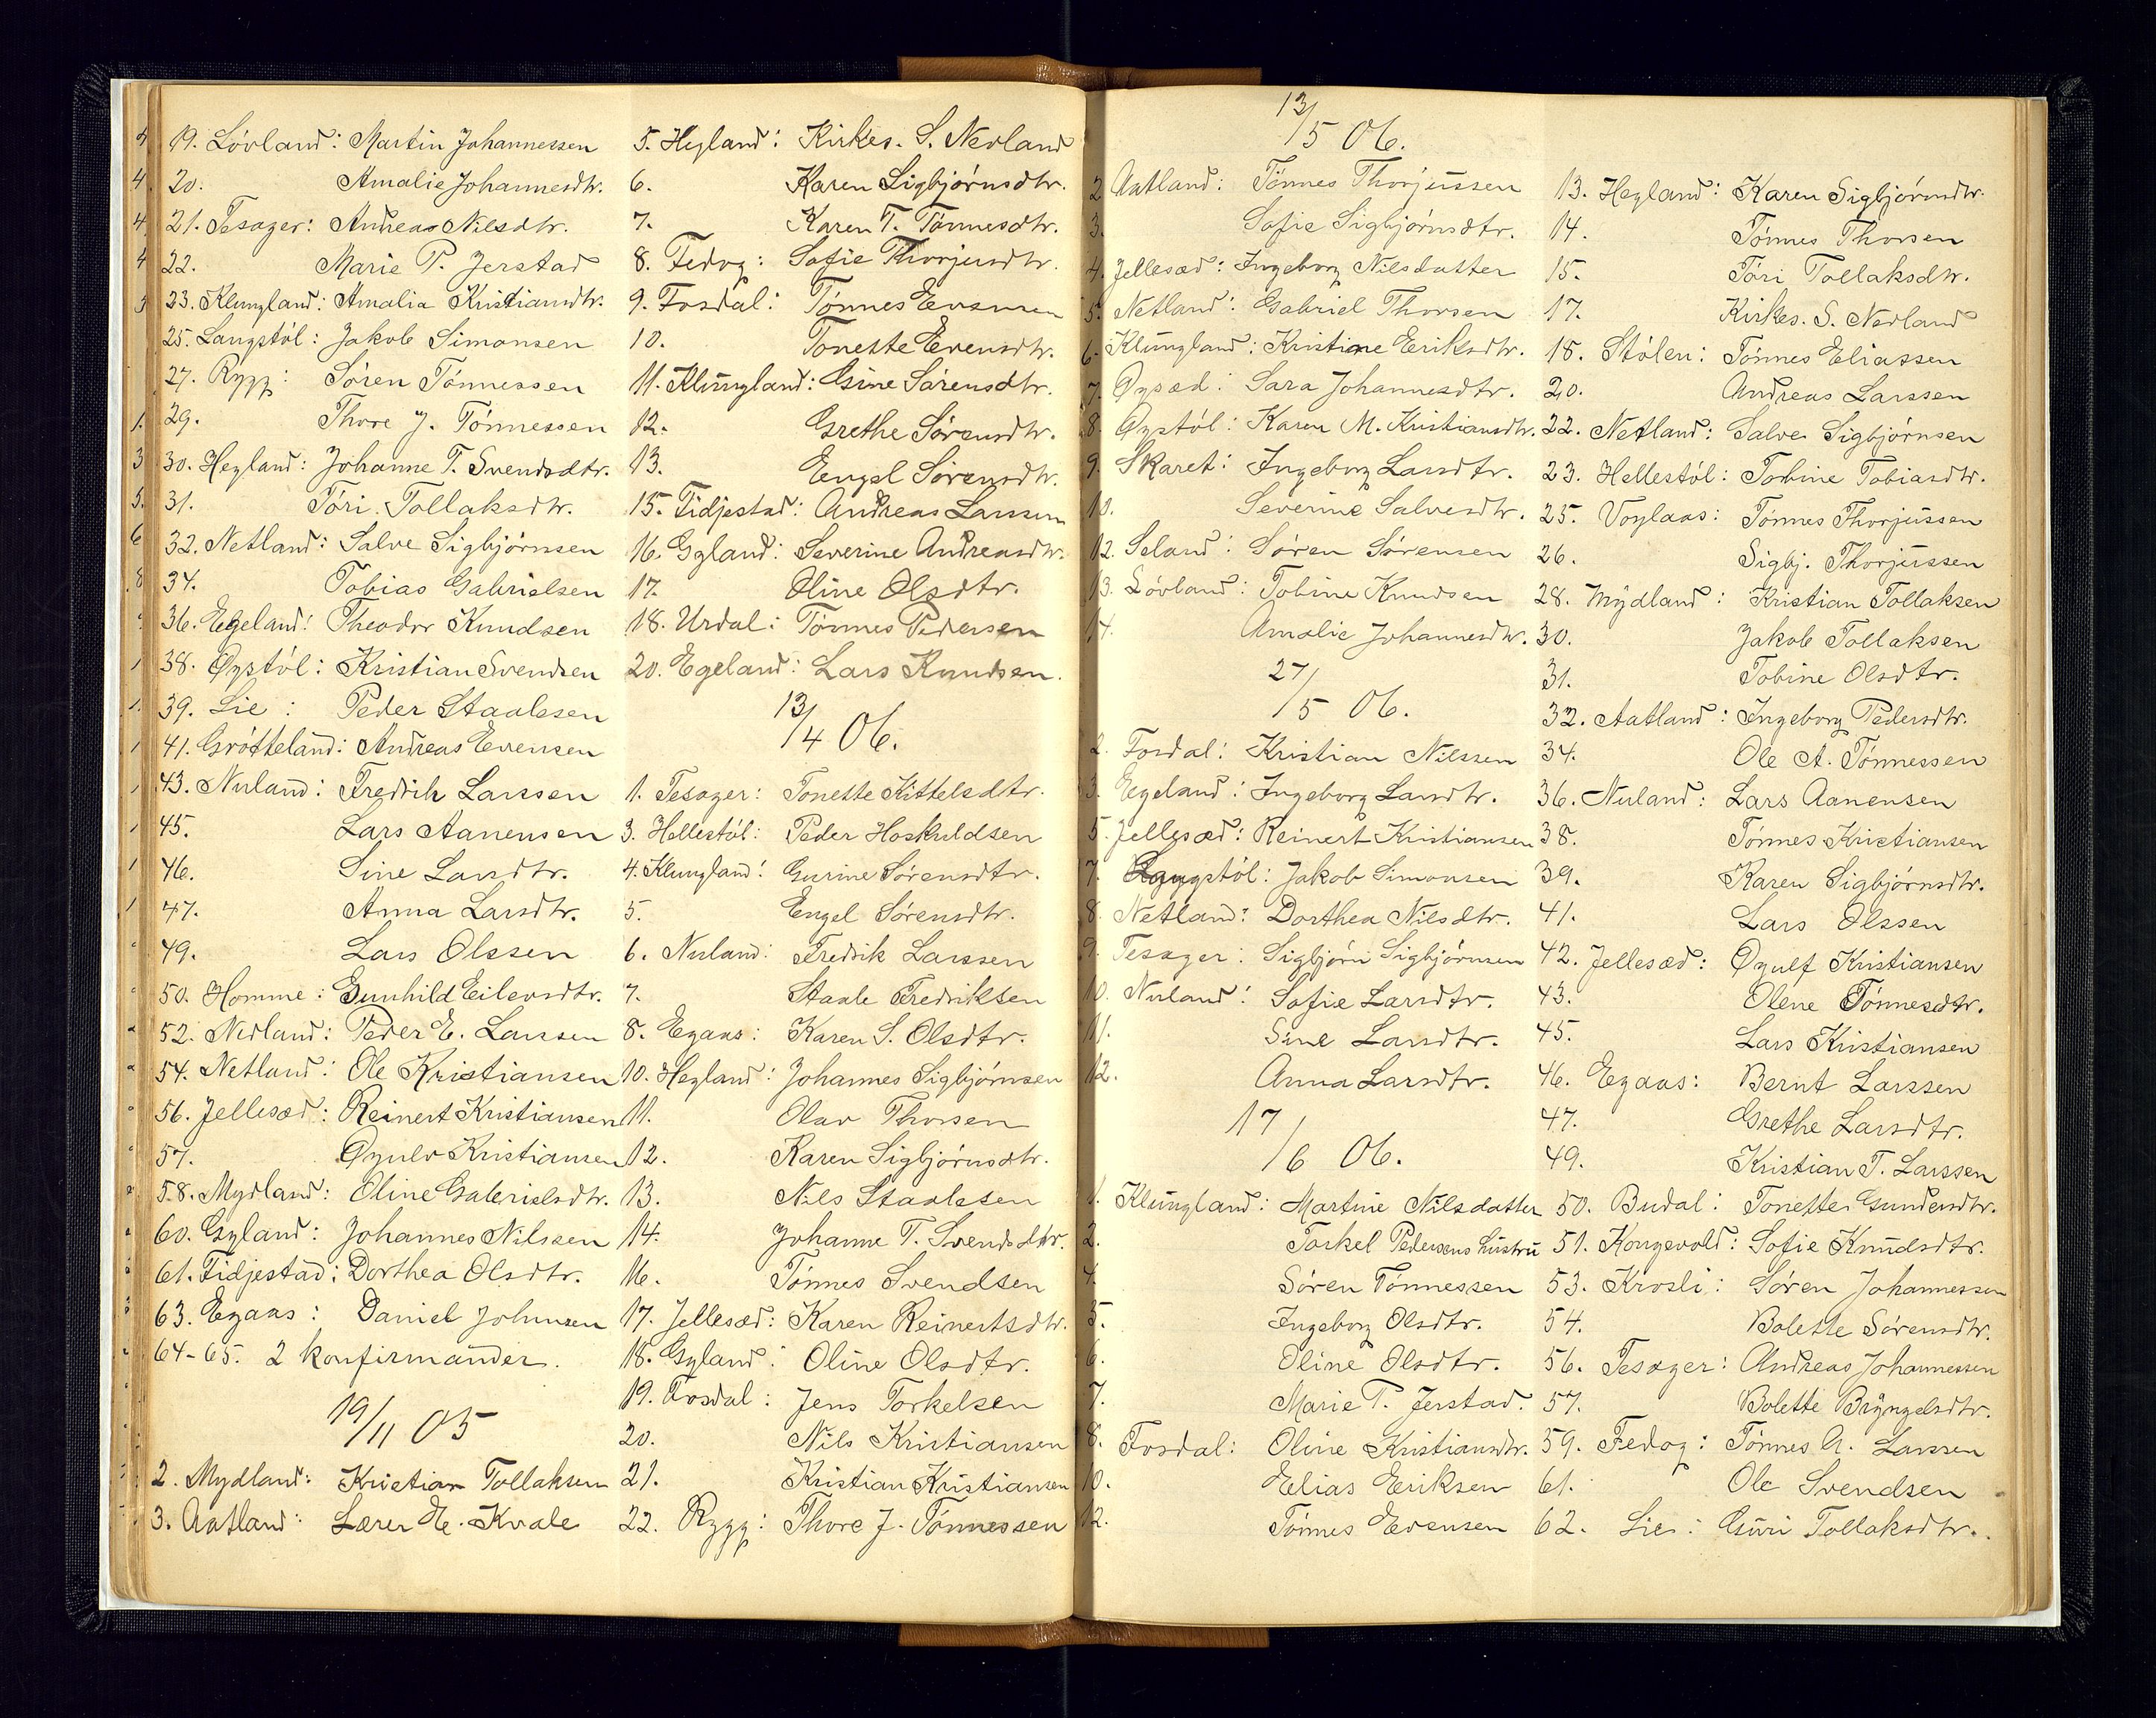 19. Lóvland: Martin Johannessen
20. Amalie Johannesdtr.
21. Tesager: Andreas Nilsdtr.
22. Marie P. Jerstad
23. Klungland: Amalia Kristiansdtr.
25. Langstól: Jakob Simonsen
27. Rygg: Sóren Tónnessen
29. Thore J. Tónnessen
30. Hegland: Johanne T. Svendsdtr.
31. Tóri Tollaksdtr.
32. Netland: Salve Sigbjórnsen
34. Tobias Gabrielsen
36. Egeland: Theodor Knudsen
38. Øystól: Kristian Svendsen
39. Lie: Peder Staalesen
41. Grótteland: Andreas Evensen
43. Nuland: Fredrik Larssen
45. Lars Aanensen
46. Sine Larsdtr.
47. Anna Larsdtr.
49. Lars Olssen
50. Homme: Gunhild Eilevsdtr.
52. Nedland: Peder E. Larssen
54. Netland: Ole Kristiansen
56. Jellesæd: Reinert Kristiansen
57. Øyulv Kristiansen
58. Mydland: Oline Gabrielsdtr.
60. Gyland: Johannes Nilssen
61. Fidjestad: Dorthea Olsdtr.
63. Egaas: Daniel Johnsen
64-65. 2 konfirmander.
19/11 05
2. Mydland: Kristian Tollaksen
3. Aatland: Lærer E. Kvale
5. Hegland: Kirkes. S. Nedland
6. Karen Sigbjórnsdtr.
7. Karen T. Tónnesdtr.
8. Fedog: Sofie Thorjusdtr.
9. Fosdal: Tónnes Evensen
10. Tonette Evensdtr.
11. Klungland: Gine Sórensdtr.
12. Grethe Sórensdtr.
13. Engel Sórensdtr.
15. Fidjestad: Andreas Larssen
16. Gyland: Severine Andreasdtr.
17. Oline Olsdtr.
18. Urdal: Tónnes Pedersen
20. Egeland: Lars Knudsen.
13/4 06.
1. Tesager: Tonette Kittelsdtr.
3. Hellestól: Peder Hoskuldsen
4. Klungland: Gurine Sórensdtr.
5. Engel Sórensdtr.
6. Nuland: Fredrik Larssen
7. Staale Fredriksen
8. Egaas: Karen S. Olsdtr.
10. Hegland: Johannes Sigbjórnsen
11. Olav Thorsen
12. Karen Sigbjórnsdtr.
13. Nils Staalesen
14. Johanne T. Svendsdtr.
16. Tónnes Svendsen
17. Jellesæd: Karen Reinertsdtr.
18. Gyland: Oline Olsdtr.
19. Fosdal: Jens Torkelsen
20. Nils Kristiansen
21. Kristian Kristiansen
22. Rygg: Thore J. Tónnessen
13/5 06.
2. Aatland: Tónnes Thorjussen
3. Sofie Sigbjórnsdtr.
4. Jellesæd: Ingeborg Nilsdatter
5. Netland: Gabriel Thorsen
6. Klungland: Kristine Eriksdtr.
7. Øysæd: Sara Johannesdtr.
8. Øystól: Karen M. Kristiansdtr.
9. Skaret: Ingeborg Larsdtr.
10. Severine Salvesdtr.
12. Seland: Sóren Sórensen
13. Lóvland: Tobine Knudsen
14. Amalie Johannesdtr.
27/5 06.
2. Fosdal: Kristian Nilssen
3. Egeland: Ingeborg Larsdtr.
5. Jellesæd: Reinert Kristiansen
7. Langstól: Jakob Simonsen
8. Netland: Dorthea Nilsdtr.
9. Tesager: Sigbjórn Sigbjórnsen
10. Nuland: Sofie Larsdtr.
11. Sine Larsdtr.
12. Anna Larsdtr.
17/6 06.
1. Klungland: Martine Nilsdatter
2. Torkel Pedersens hustru
4. Sóren Tónnessen
5. Ingeborg Olsdtr.
6. Oline Olsdtr.
7. Marie P. Jerstad.
8. Fosdal: Oline Kristiansdtr.
10. Elias Eriksen
12. Tónnes Evensen
13. Hegland: Karen Sigbjórnsdtr.
14. Tónnes Thorsen
15. Tóri Tollaksdtr.
17. Kirkes. S. Nedland
18. Stólen: Tónnes Eliassen
20. Andreas Larssen
22. Netland: Salve Sigbjórnsen
23. Hellestól: Tobine Tobiasdtr.
25. Voglaas: Tónnes Thorjussen
26. Sigbj. Thorjussen
28. Mydland: Kristian Tollaksen
30. Jakob Tollaksen
31. Tobine Olsdtr.
32. Aatland: Ingeborg Pedersdtr.
34. Ole A. Tónnessen
36. Nuland: Lars Aanensen
38. Tónnes Kristiansen
39. Karen Sigbjórnsdtr.
41. Lars Olssen
42. Jellesæd: Øyulf Kristiansen
43. Olene Tónnesdtr.
45. Lars Kristiansen
46. Egaas: Bernt Larssen
47. Grethe Larsdtr.
49. Kristian T. Larssen
50. Budal: Tonette Gundersdtr.
51. Kongevold: Sofie Knudsdtr.
53. Krosli: Sóren Johannessen
54. Bolette Sórensdtr.
56. Tesager: Andreas Johannessen
57. Bolette Bryngelsdtr.
59. Fedog: Tónnes A. Larssen
61. Ole Svendsen
62. Lie: Guri Tollaksdtr.